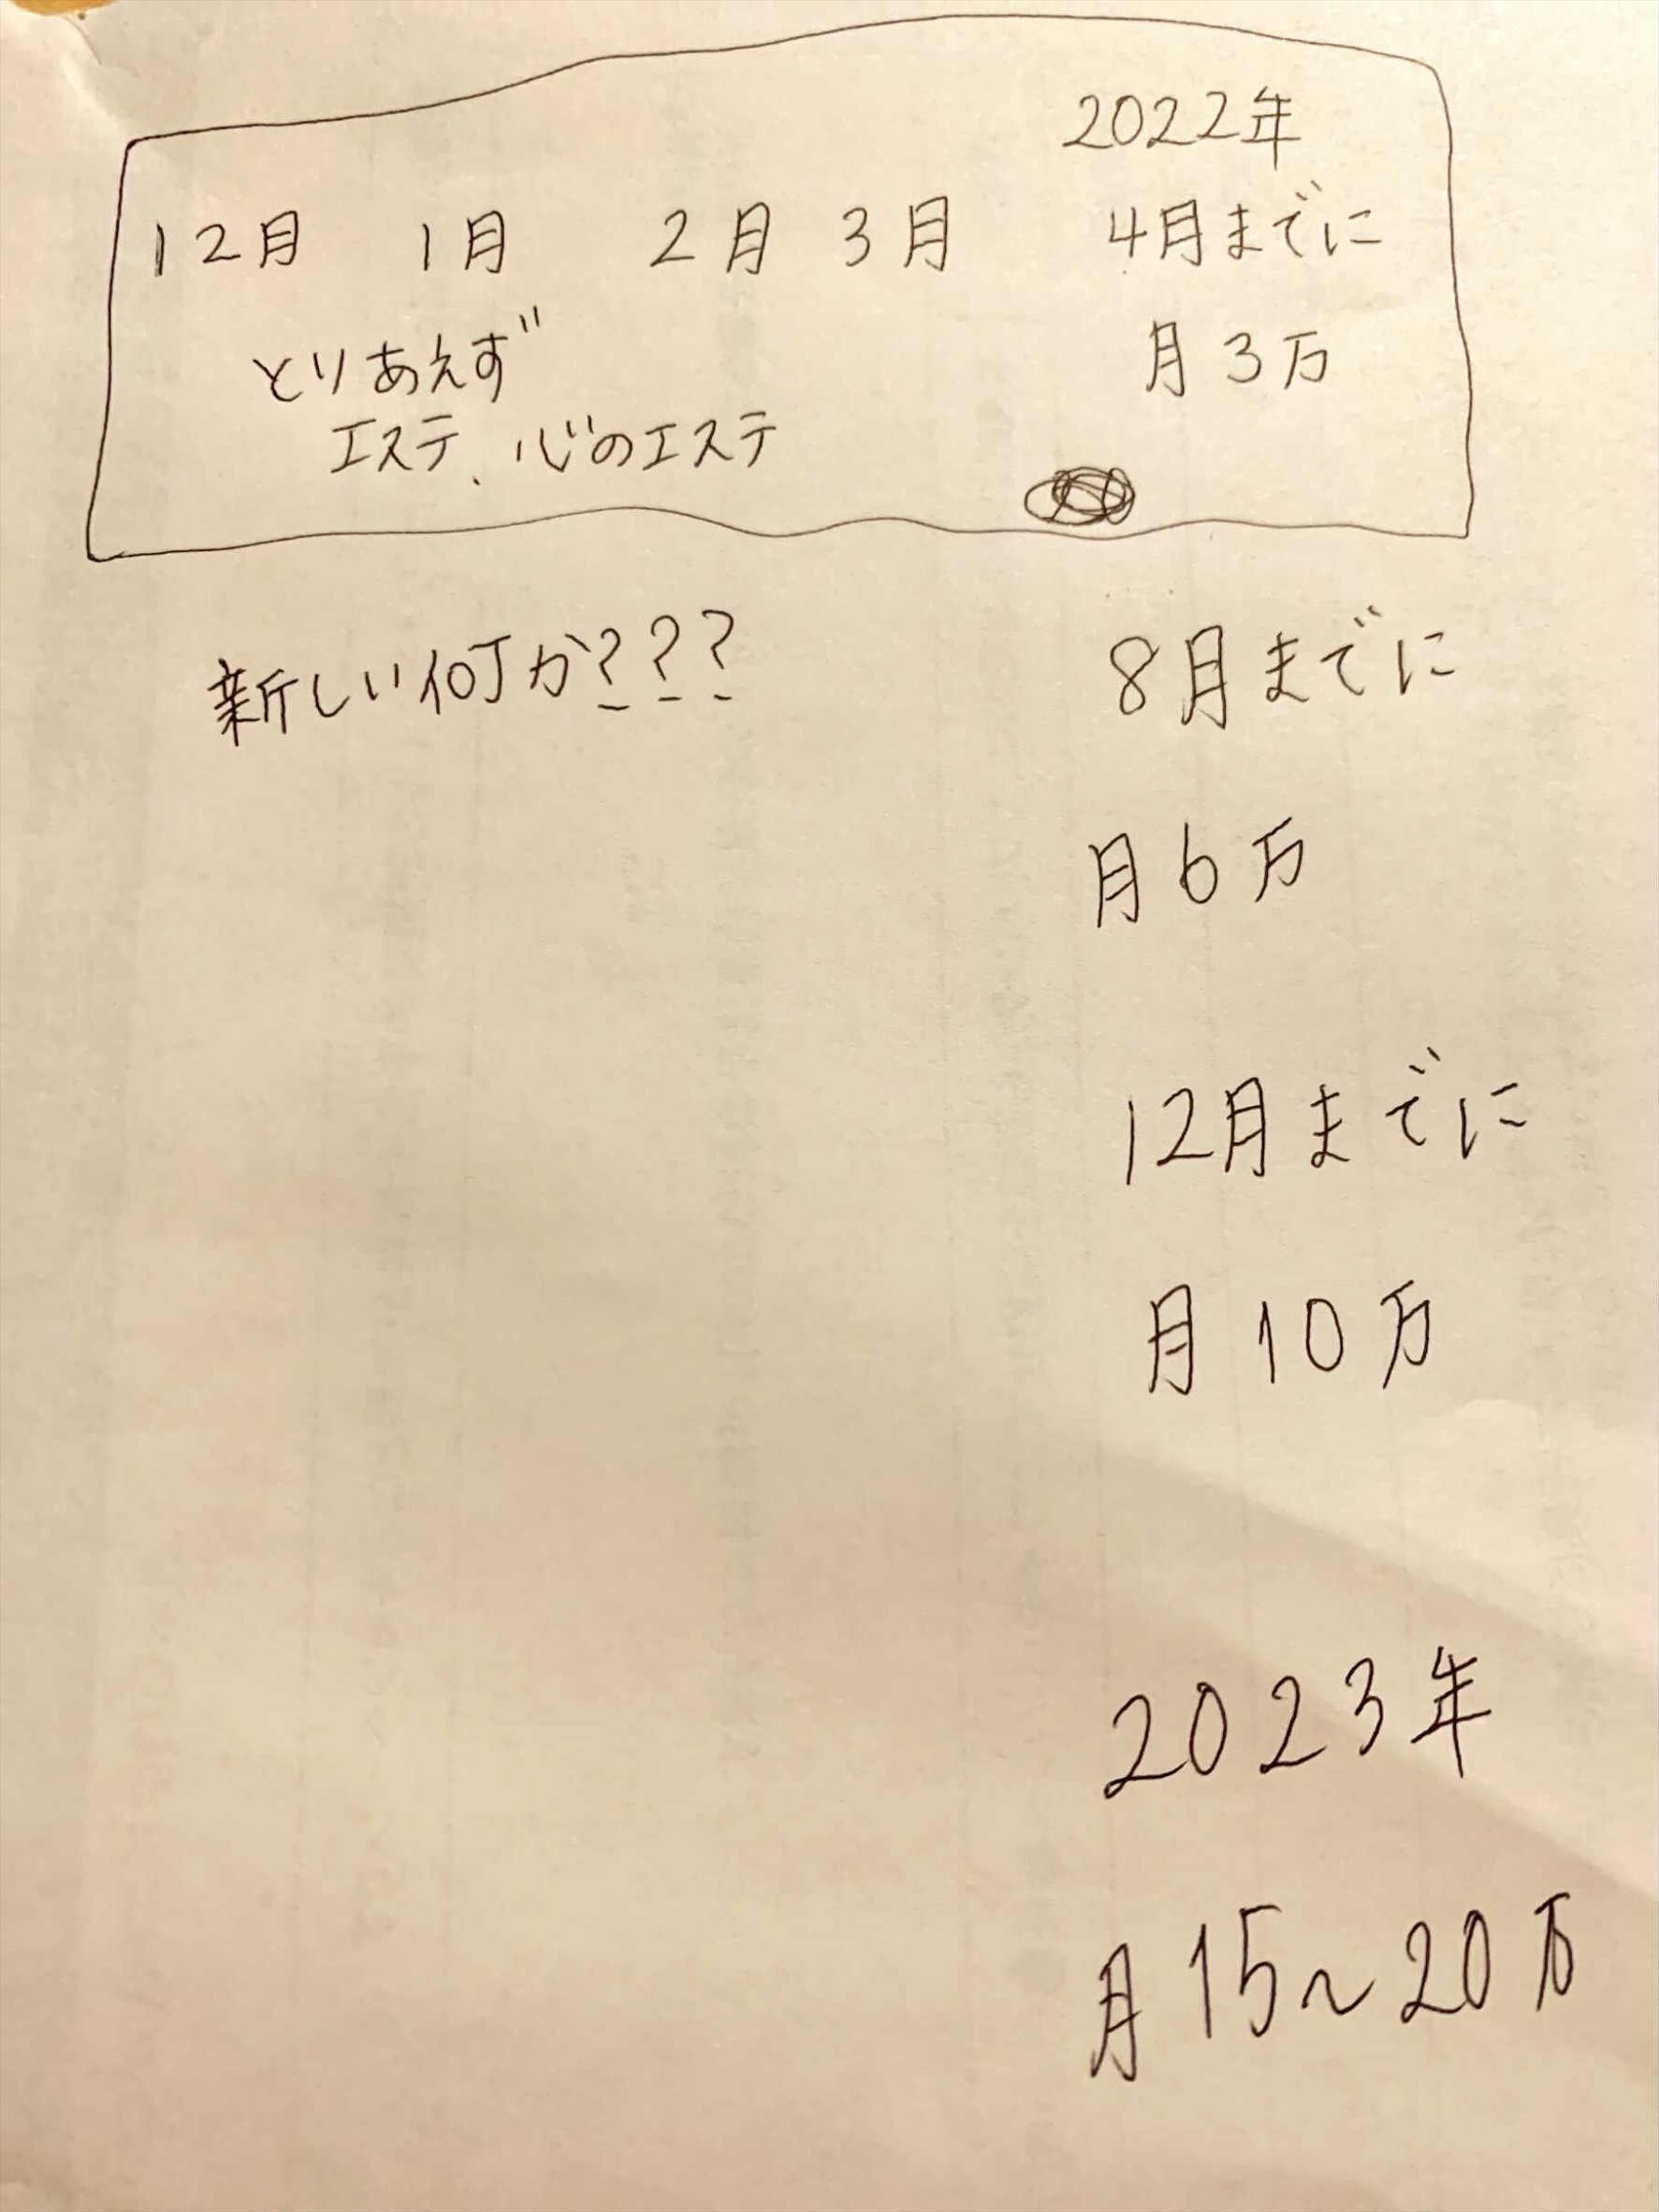 2022年
12月 1月 2月 3月 4月までに
とりあえず 月3万
エステ、心のエステ
新しい何か??? 8月までに
月6万
12月までに
月10万
2023年
月15~20万